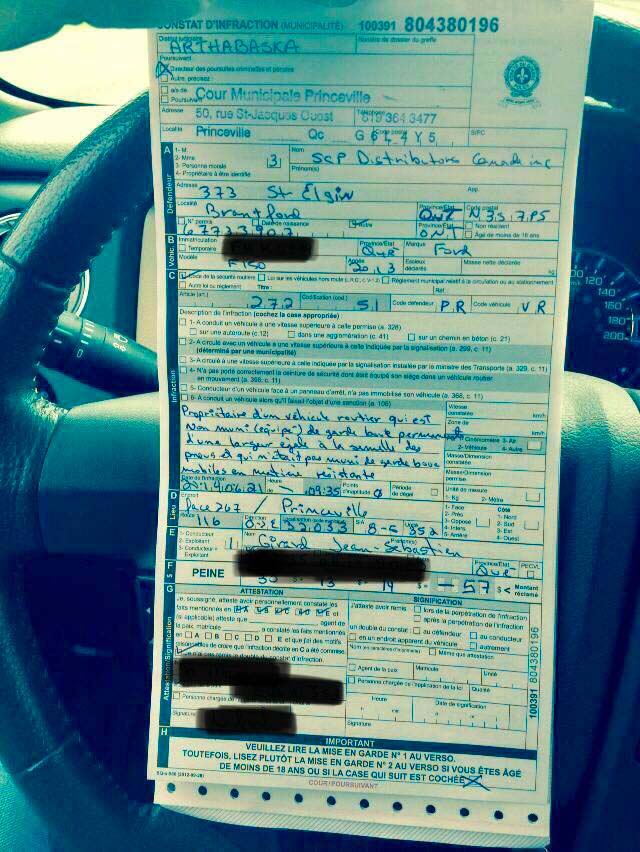 CONSTAT D'INFRACTION (MUNICIPALITÉ) 100391 804380196
District judiciaire
ARTHABASKA
Numéro de dossier du greffe
Poursuivant
Directeur des poursuites criminelles et pénales
Autre, précisez :
a/s de
Poursuivant
Cour Municipale Princeville
Adresse
50, rue St-Jacques Ouest
Téléphone
819 364 3477
Localité
Princeville
Qc
Code postal
G6L 4Y5
S/PC
A
Défendeur
1- M.
2- Mme
3- Personne morale
4- Propriétaire à identifier
3
Nom
SCP Distributors Canada inc
Prénom(s)
Adresse
373 St Elgin
App.
Localité
Brantford
Province/État
Ont
Code postal
N3S7P5
N° permis
Date de naissance
Autre
Non résident
Âgé de moins de 18 ans
B
Véhic.
Immatriculation
Temporaire
Province/État
Que
Marque
Ford
Modèle
F150
Année
2013
Essieux déclarés
Masse nette déclarée
kg
C
Code de la sécurité routière
Règlement municipal relatif à la circulation ou au stationnement
Autre loi ou règlement
Titre :
Réf.
Article (art.)
272
Codification (cod.)
51
Code défendeur PR
Code véhicule VR
Infraction
Description de l'infraction (cochez la case appropriée)
1- A conduit un véhicule à une vitesse supérieure à celle permise (a. 328)
sur une autoroute (c.12)
dans une agglomération (c. 41)
sur un chemin en béton (c. 21)
2- A circulé avec un véhicule à une vitesse supérieure à celle indiquée par la signalisation (a. 299, c. 11)
(déterminé par une municipalité)
3- A circulé à une vitesse supérieure à celle indiquée par la signalisation installée par le ministre des Transports (a. 329, c. 11)
4- N'a pas porté correctement la ceinture de sécurité dont était équipé son siège dans un véhicule routier
en mouvement (a. 396, c. 11)
5- Conducteur d'un véhicule face à un panneau d'arrêt, n'a pas immobilisé son véhicule (a. 368, c. 11)
6- A conduit un véhicule alors qu'il faisait l'objet d'une sanction (a. 106)
Propriétaire d'un véhicule routier qui est
non muni (équipé) de garde boue permanents
d'une largeur égale à la semelle des
pneus et qui n'était pas muni de garde boue
mobiles en matière résistante
Vitesse constatée
km/h
Zone de
km/h
Cinémomètre
2- Véhicule
3- Air
4- Autre
Masse/Dimension constatée
Masse/Dimension permise
Date de l'infraction
2014.06.21
Heure
09:35
Points d'inaptitude
0
Période de dégel
Unité de mesure
1- Kg
2- Mètre
D
Lieu
Endroit
face 267 / Princeville
Route
116
32033
S/A
Unité
1- Face
2- Près
3- Opposé
4- Inters
5- Arrière
Côté
1- Nord
2- Sud
3- Est
4- Ouest
E
1- Conducteur
2- Exploitant
3- Conducteur = Exploitant
1
Prénom(s)
Girard Jean-Sébastien
Province/État
Que
PECVL
F
PEINE
57 $
Montant réclamé
G
Attestation/Signification
ATTESTATION
Je, soussigné, atteste avoir personnellement constaté les
faits mentionnés en
(si applicable) atteste que
agent de
la paix, matricule
a constaté les faits mentionnés
en A B C D E et que j'ai des motifs
raisonnables de croire que l'infraction décrite en C a été commise.
Personne chargée
Signature
SIGNIFICATION
J'atteste avoir remis
lors de la perpétration de l'infraction
après la perpétration de l'infraction
un double du constat :
au défendeur
au conducteur
en un endroit apparent du véhicule
autrement
Même que attestation
Agent de la paix
Matricule
Unité
Personne chargée de l'application de la loi
Qualité
Heure
Date de signification
Signature
100391 804380196
H
IMPORTANT
VEUILLEZ LIRE LA MISE EN GARDE N° 1 AU VERSO.
TOUTEFOIS, LISEZ PLUTÔT LA MISE EN GARDE N° 2 AU VERSO SI VOUS ÊTES ÂGÉ
DE MOINS DE 18 ANS OU SI LA CASE QUI SUIT EST COCHÉE
COUR/POURSUIVANT
120
140
160
180
200